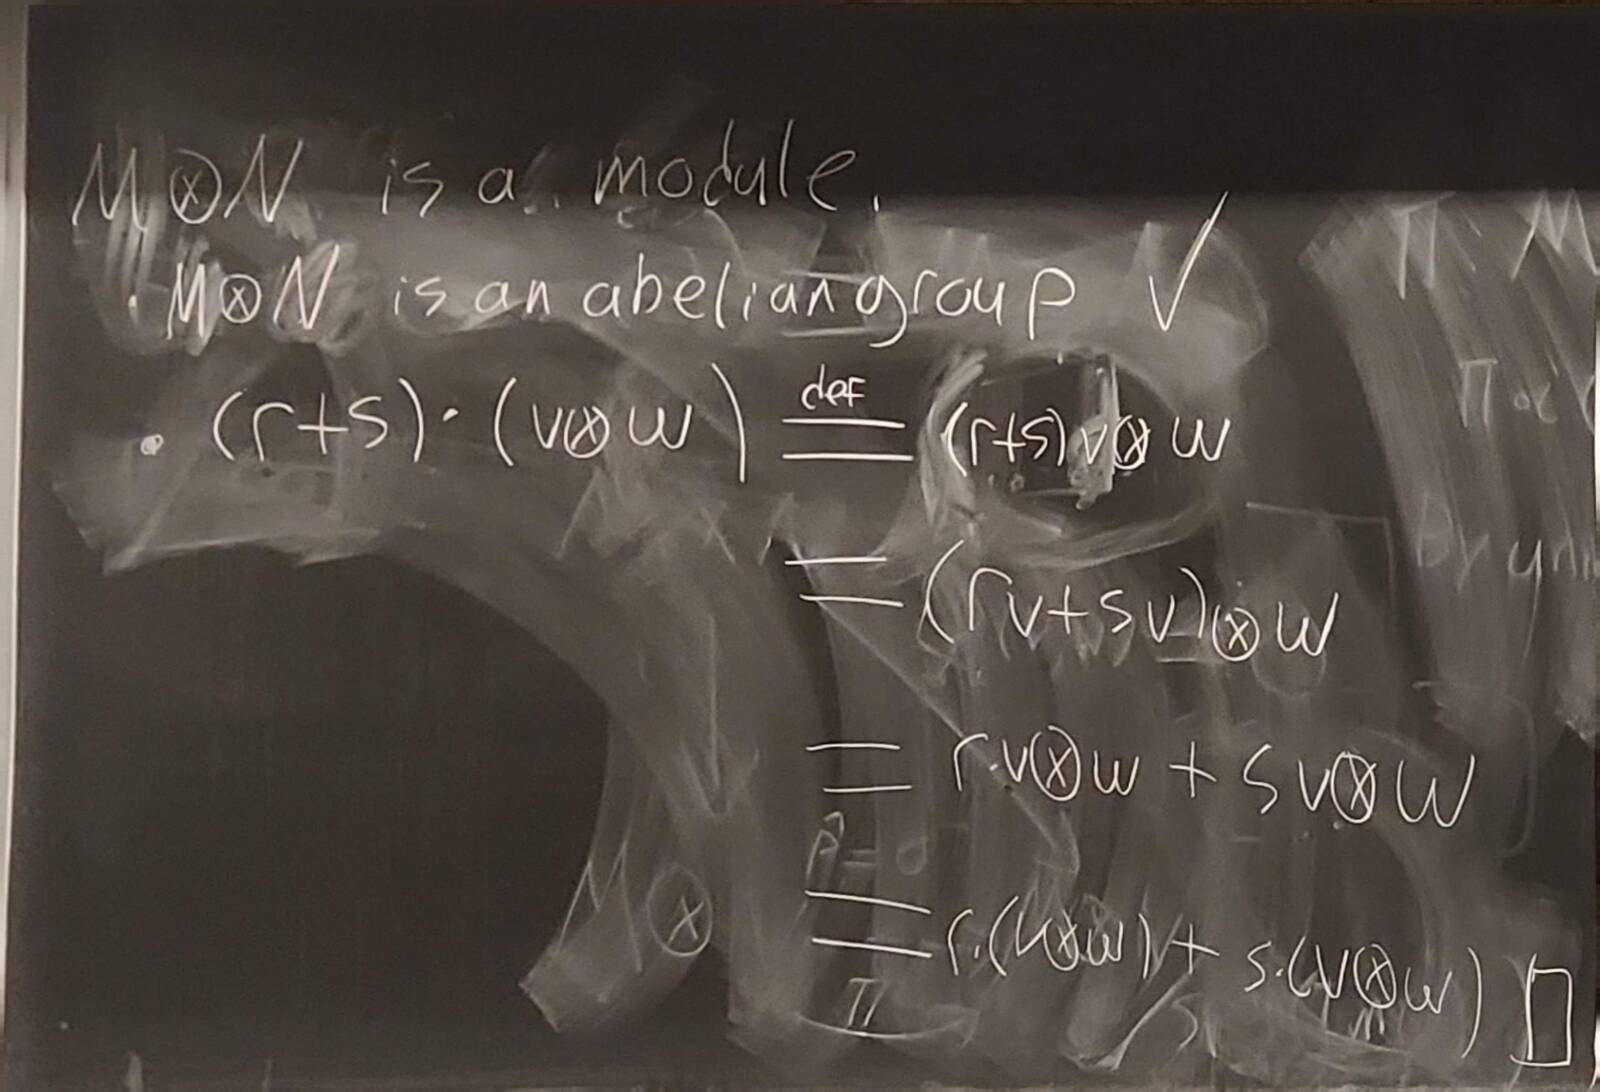 M⊗N is a module.
· M⊗N is an abelian group ✓
· (r+s)·(v⊗w) def = (r+s)v⊗w
= (rv+sv)⊗w
= r·v⊗w + sv⊗w
= r·(v⊗w) + s·(v⊗w) □
M ⊗